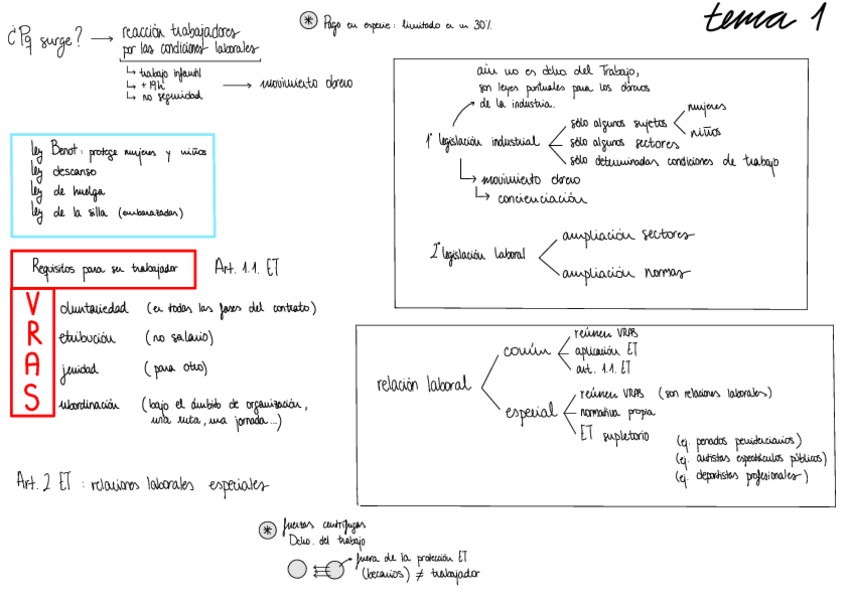 tema 1
¿Pq surge? → reacción trabajadores
por las condiciones laborales
↳ trabajo infantil
↳ +19h
↳ no seguridad
→ movimiento obrero
* Pago en especie: limitado a un 30%
ley Benot: protege mujeres y niños
ley descanso
ley de huelga
ley de la silla (embarazadas)
aún no es dcho del Trabajo,
son leyes puntuales para los obreros
de la industria.
1º legislación industrial
sólo algunos sujetos
mujeres
niños
sólo algunos sectores
sólo determinadas condiciones de trabajo
↳ movimiento obrero
↳ concienciación
2º legislación laboral
ampliación sectores
ampliación normas
Requisitos para ser trabajador
Art. 1.1. ET
Voluntariedad (en todas las fases del contrato)
Retribución (no salario)
Ajenidad (para otro)
Subordinación (bajo el ámbito de organización,
una ruta, una jornada...)
Art. 2 ET : relaciones laborales especiales
relación laboral
común
reúnen VRAS
aplicación ET
art. 1.1. ET
especial
reúnen VRAS (son relaciones laborales)
normativa propia
ET supletorio
(ej. penados penitenciarios)
(ej. artistas espectáculos públicos)
(ej. deportistas profesionales)
* fuerzas centrífugas
Dcho. del trabajo
fuera de la protección ET
(becarios) ≠ trabajador